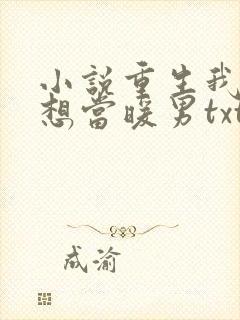 小說重生我
想當暖男txt
成渝